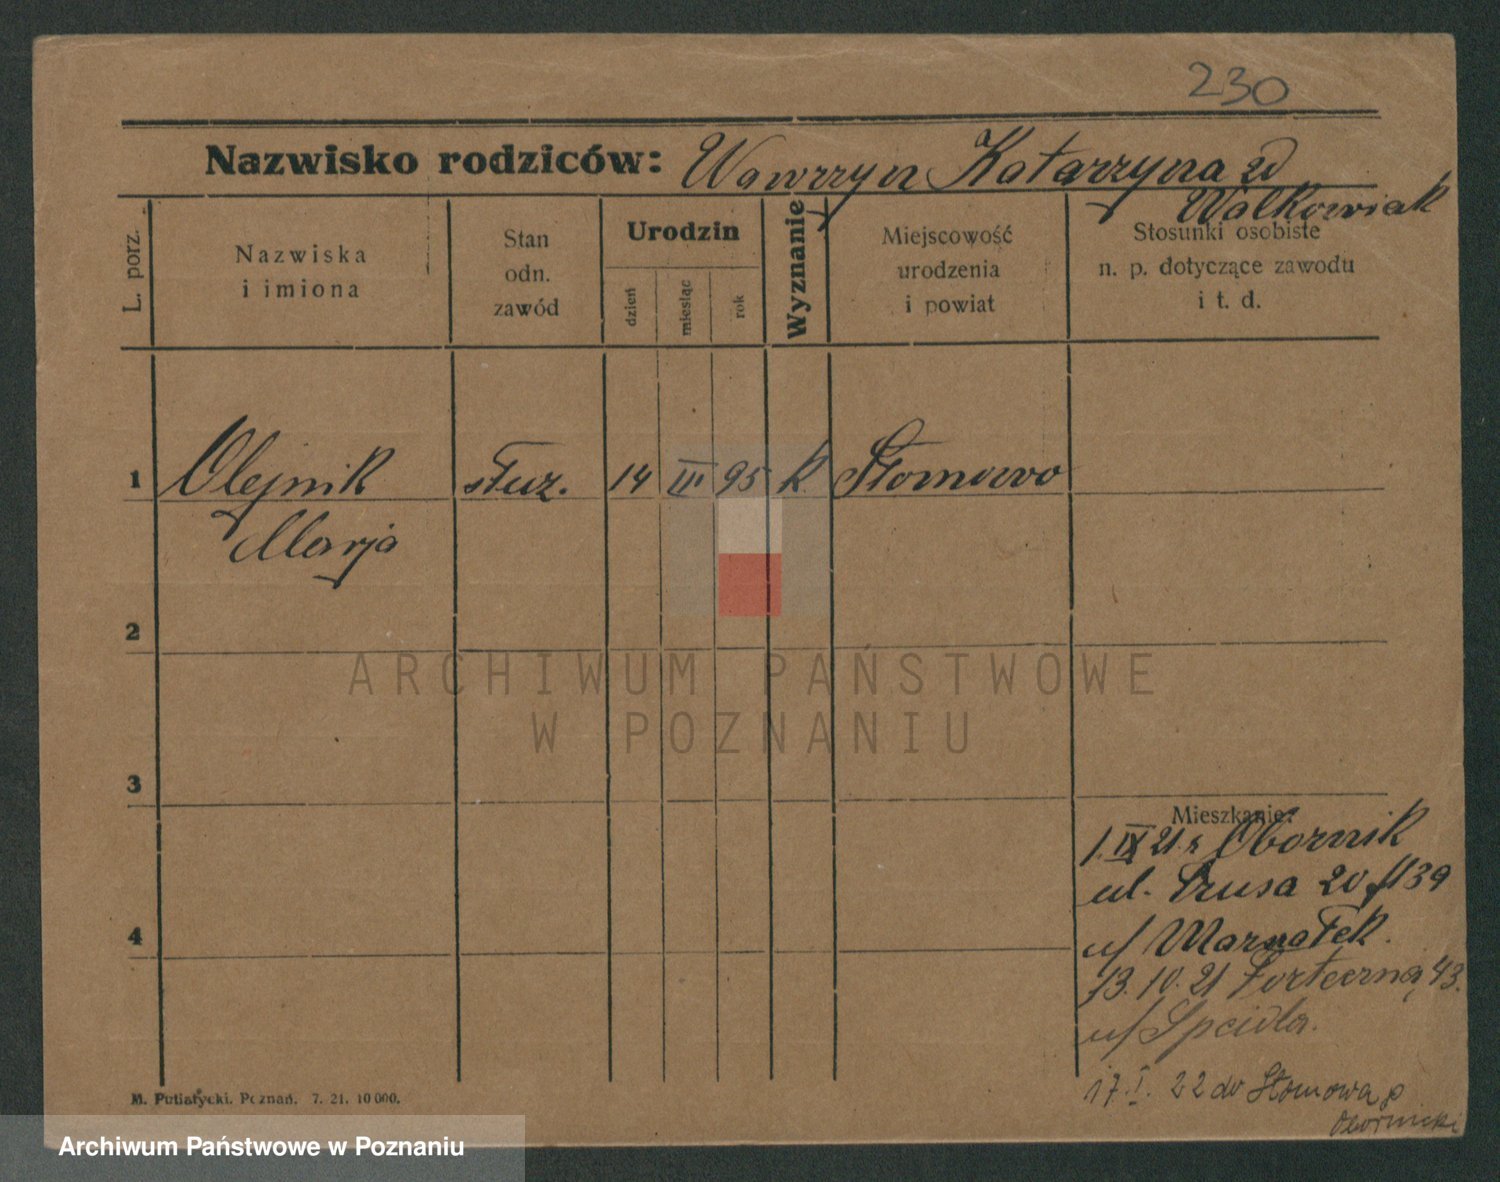 230
Nazwisko rodziców: Wawrzyn Katarzyna zd
Walkowiak
L. porz.
Nazwiska
i imiona
Stan
odn.
zawód
Urodzin
dzień
miesiąc
rok
Wyznanie
Miejscowość
urodzenia
i powiat
Stosunki osobiste
n. p. dotyczące zawodu
i t. d.
1 Olejnik służ. 14 III 95 k. Słomowo
Marja
2
3
4
Mieszkanie:
1. IX 21 z Obornik
ul. 20 139
u/ Marnałek.
13. 10. 21 Forteczną 43.
u/ Speidla.
17. I. 22 do Słomowa p
Obornicki
M. Putiatycki. Poznań. 7. 21. 10 000.
ARCHIWUM PAŃSTWOWE
W POZNANIU
Archiwum Państwowe w Poznaniu